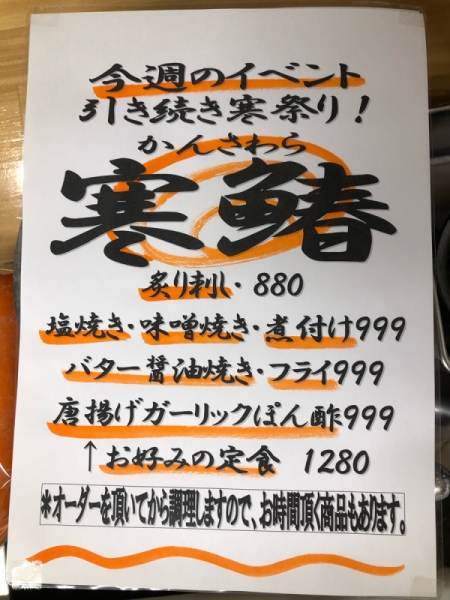 今週のイベント
引き続き寒祭り!
かんさわら
寒鰆
炙り刺し・880
塩焼き・味噌焼き・煮付け999
バター醤油焼き・フライ999
唐揚げガーリックぽん酢999
↑お好みの定食 1280
*オーダーを頂いてから調理しますので、お時間頂く商品もあります。